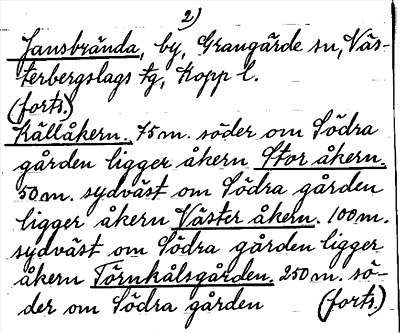 2)
Jansbrända, by, Grangärde sn, Väs-
terbergslags tg, Kopp l.
(forts.)
Källåkern. 75 m. söder om Södra
gården ligger åkern Stor åkern.
50 m. sydväst om Södra gården
ligger åkern Väster åkern. 100 m.
sydväst om Södra gården ligger
åkern Törnkålsgården. 250 m. sö-
der om Södra gården (forts.)